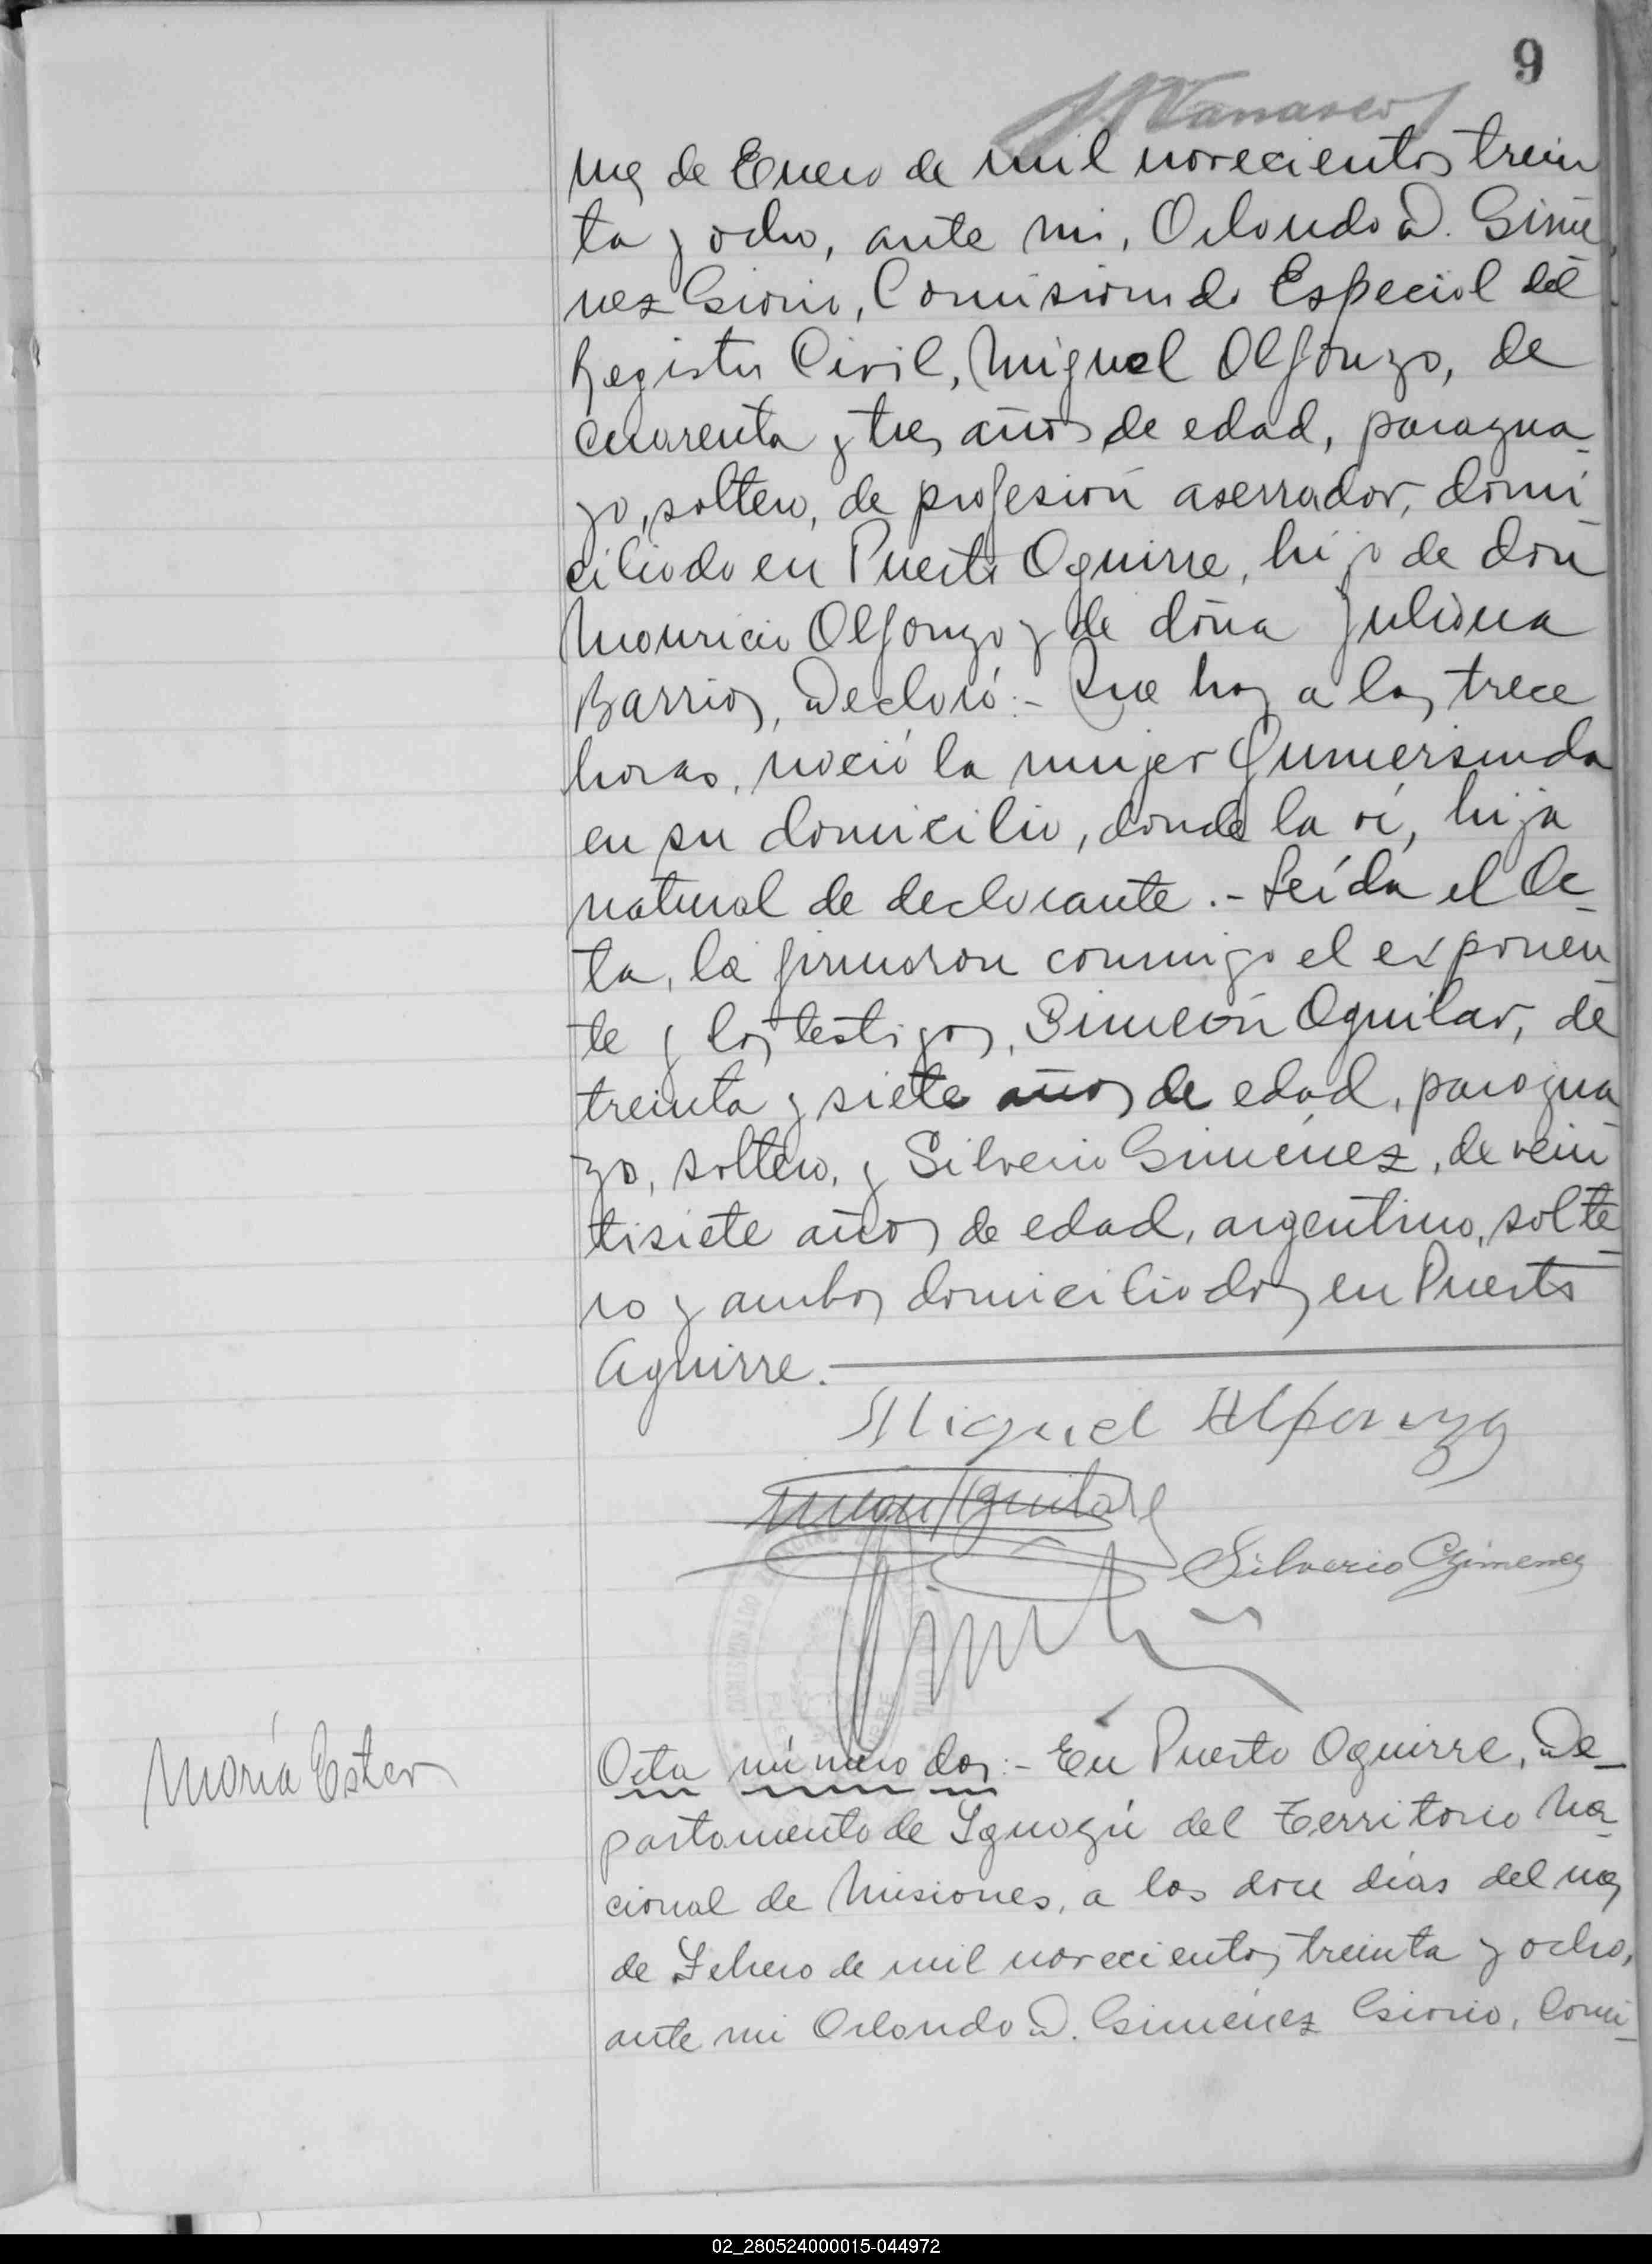 9
mes de Enero de mil novecientos trein
ta y ocho, ante mi, Orlando D. Gimé
nez Giorio, Comisionado Especial del
Registro Civil, Miguel Alfonzo, de
cuarenta y tres años de edad, paragua-
yo, soltero, de profesión aserrador, domi-
ciliado en Puerto Aguirre, hijo de don
Mauricio Alfonzo y de doña Juliana
Barrios, Declaró:- Que hoy a las trece
horas, nació la mujer Gumersinda
en su domicilio, donde la vi, hija
natural de declarante.- Leída el Ac-
ta, la firmaron conmigo el exponen
te y los testigos, Simeón Aguilar, de
treinta y siete años de edad, paragua
yo, soltero, y Silverio Giménez, de vein
tisiete años de edad, argentino, solte-
ro y ambos domiciliados en Puerto
Aguirre.
Miguel Alfonzo
Simeon Aguilar
Silverio Gimenez
María Ester
Acta número dos:- En Puerto Aguirre, De-
partamento de Iguazú del Territorio Na-
cional de Misiones, a los doce días del mes
de Febrero de mil novecientos treinta y ocho,
ante mi Orlando D. Giménez Giorio, Comi-
02_280524000015-044972